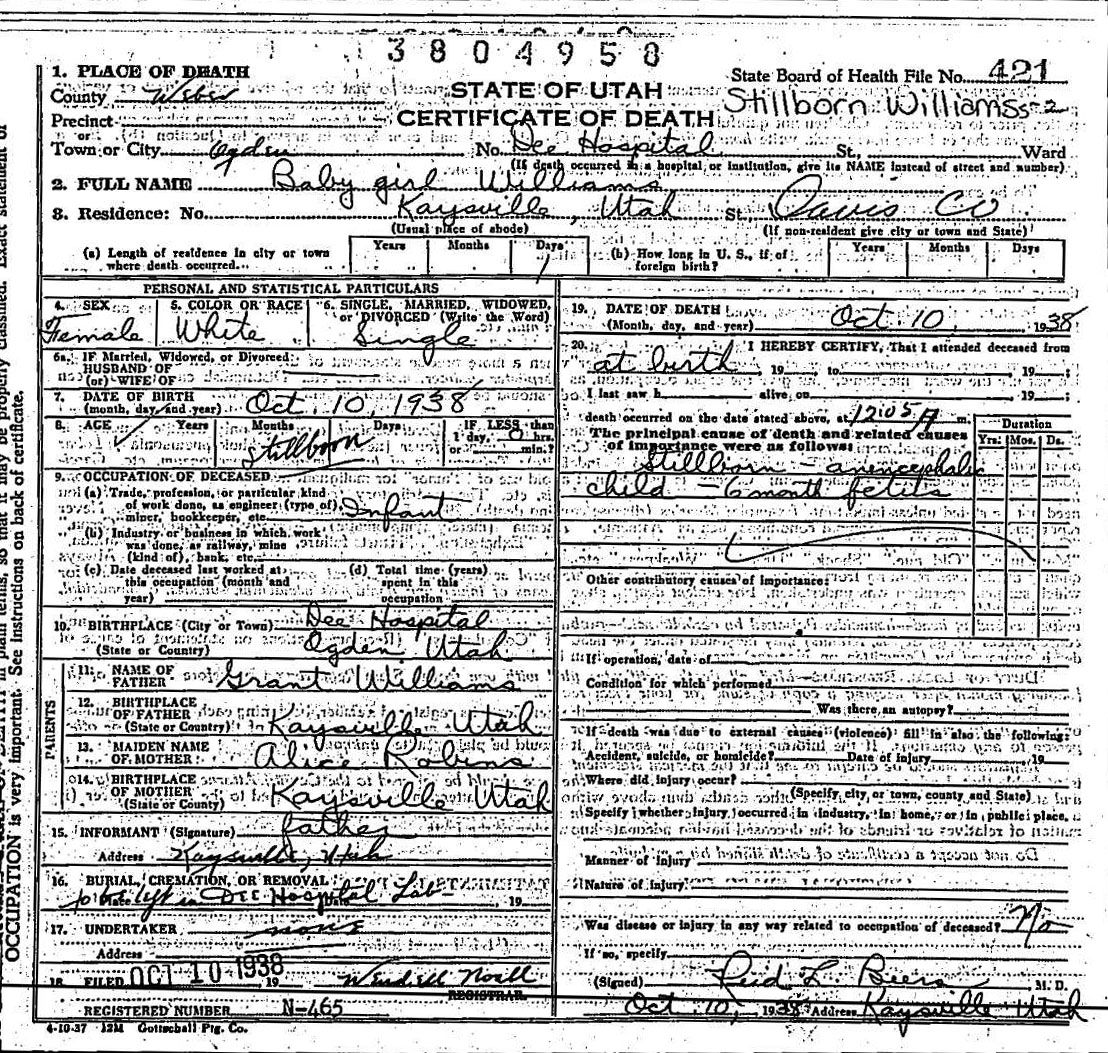 3804958
1. PLACE OF DEATH
County Weber
Precinct
Town or City Ogden
STATE OF UTAH
CERTIFICATE OF DEATH
State Board of Health File No. 421
Stillborn Williams s-2
No. Dee Hospital St., Ward
(If death occurred in a hospital or institution, give its NAME instead of street and number)
2. FULL NAME Baby girl Williams
3. Residence: No. Kaysville, Utah St., Davis Co
(Usual place of abode) (If non-resident give city or town and State)
(a) Length of residence in city or town where death occurred Years Months Days 1
(b) How long in U. S., if of foreign birth? Years Months Days
PERSONAL AND STATISTICAL PARTICULARS
4. SEX Female
5. COLOR OR RACE White
6. SINGLE, MARRIED, WIDOWED, or DIVORCED (Write the Word) Single
6a. IF Married, Widowed, or Divorced
HUSBAND OF
(or) WIFE OF
7. DATE OF BIRTH
(month, day and year) Oct. 10, 1938
8. AGE Years Months Days
Stillborn
IF LESS than
1 day, 0 hrs.
or min.?
9. OCCUPATION OF DECEASED
(a) Trade, profession, or particular kind
of work done, as engineer (type of),
miner, bookkeeper, etc. Infant
(b) Industry or business in which work
was done, as railway, mine
(kind of), bank, etc.
(c) Date deceased last worked at
this occupation (month and
year)
(d) Total time (years)
spent in this
occupation
10. BIRTHPLACE (City or Town) Dee Hospital
(State or Country) Ogden Utah
PARENTS
11. NAME OF
FATHER Grant Williams
12. BIRTHPLACE
OF FATHER
(State or Country) Kaysville Utah
13. MAIDEN NAME
OF MOTHER Alice Robins
14. BIRTHPLACE
OF MOTHER
(State or County) Kaysville Utah
15. INFORMANT (Signature) father
Address Kaysville, Utah
16. BURIAL, CREMATION, OR REMOVAL
to be left in Dee Hospital Lab 19
17. UNDERTAKER none
Address
18. FILED OCT 10 1938 19 Wendell Noall
REGISTRAR.
REGISTERED NUMBER N-465
4-10-37 12M Gottschall Ptg. Co.
19. DATE OF DEATH
(Month, day, and year) Oct. 10, 1938
20. I HEREBY CERTIFY, That I attended deceased from
at birth, 19 to 19 ;
I last saw h alive on 19 ;
death occurred on the date stated above, at 12:05 A m.
The principal cause of death and related causes
of importance were as follows:
Duration
Yrs. Mos. Ds.
Stillborn - anencephalic
child - 6 month fetus
Other contributory causes of importance:
If operation, date of
Condition for which performed
Was there an autopsy?
If death was due to external causes (violence) fill in also the following:
Accident, suicide, or homicide? Date of injury 19
Where did injury occur?
(Specify city or town, county and State)
Specify whether injury occurred in industry, in home, or in public place.
Manner of Injury
Nature of injury
Was disease or injury in any way related to occupation of deceased? No
If so, specify
(Signed) Reid L. Beers M. D.
Oct 10, 1938 Address Kaysville Utah
OCCUPATION is very important. See instructions on back of certificate.